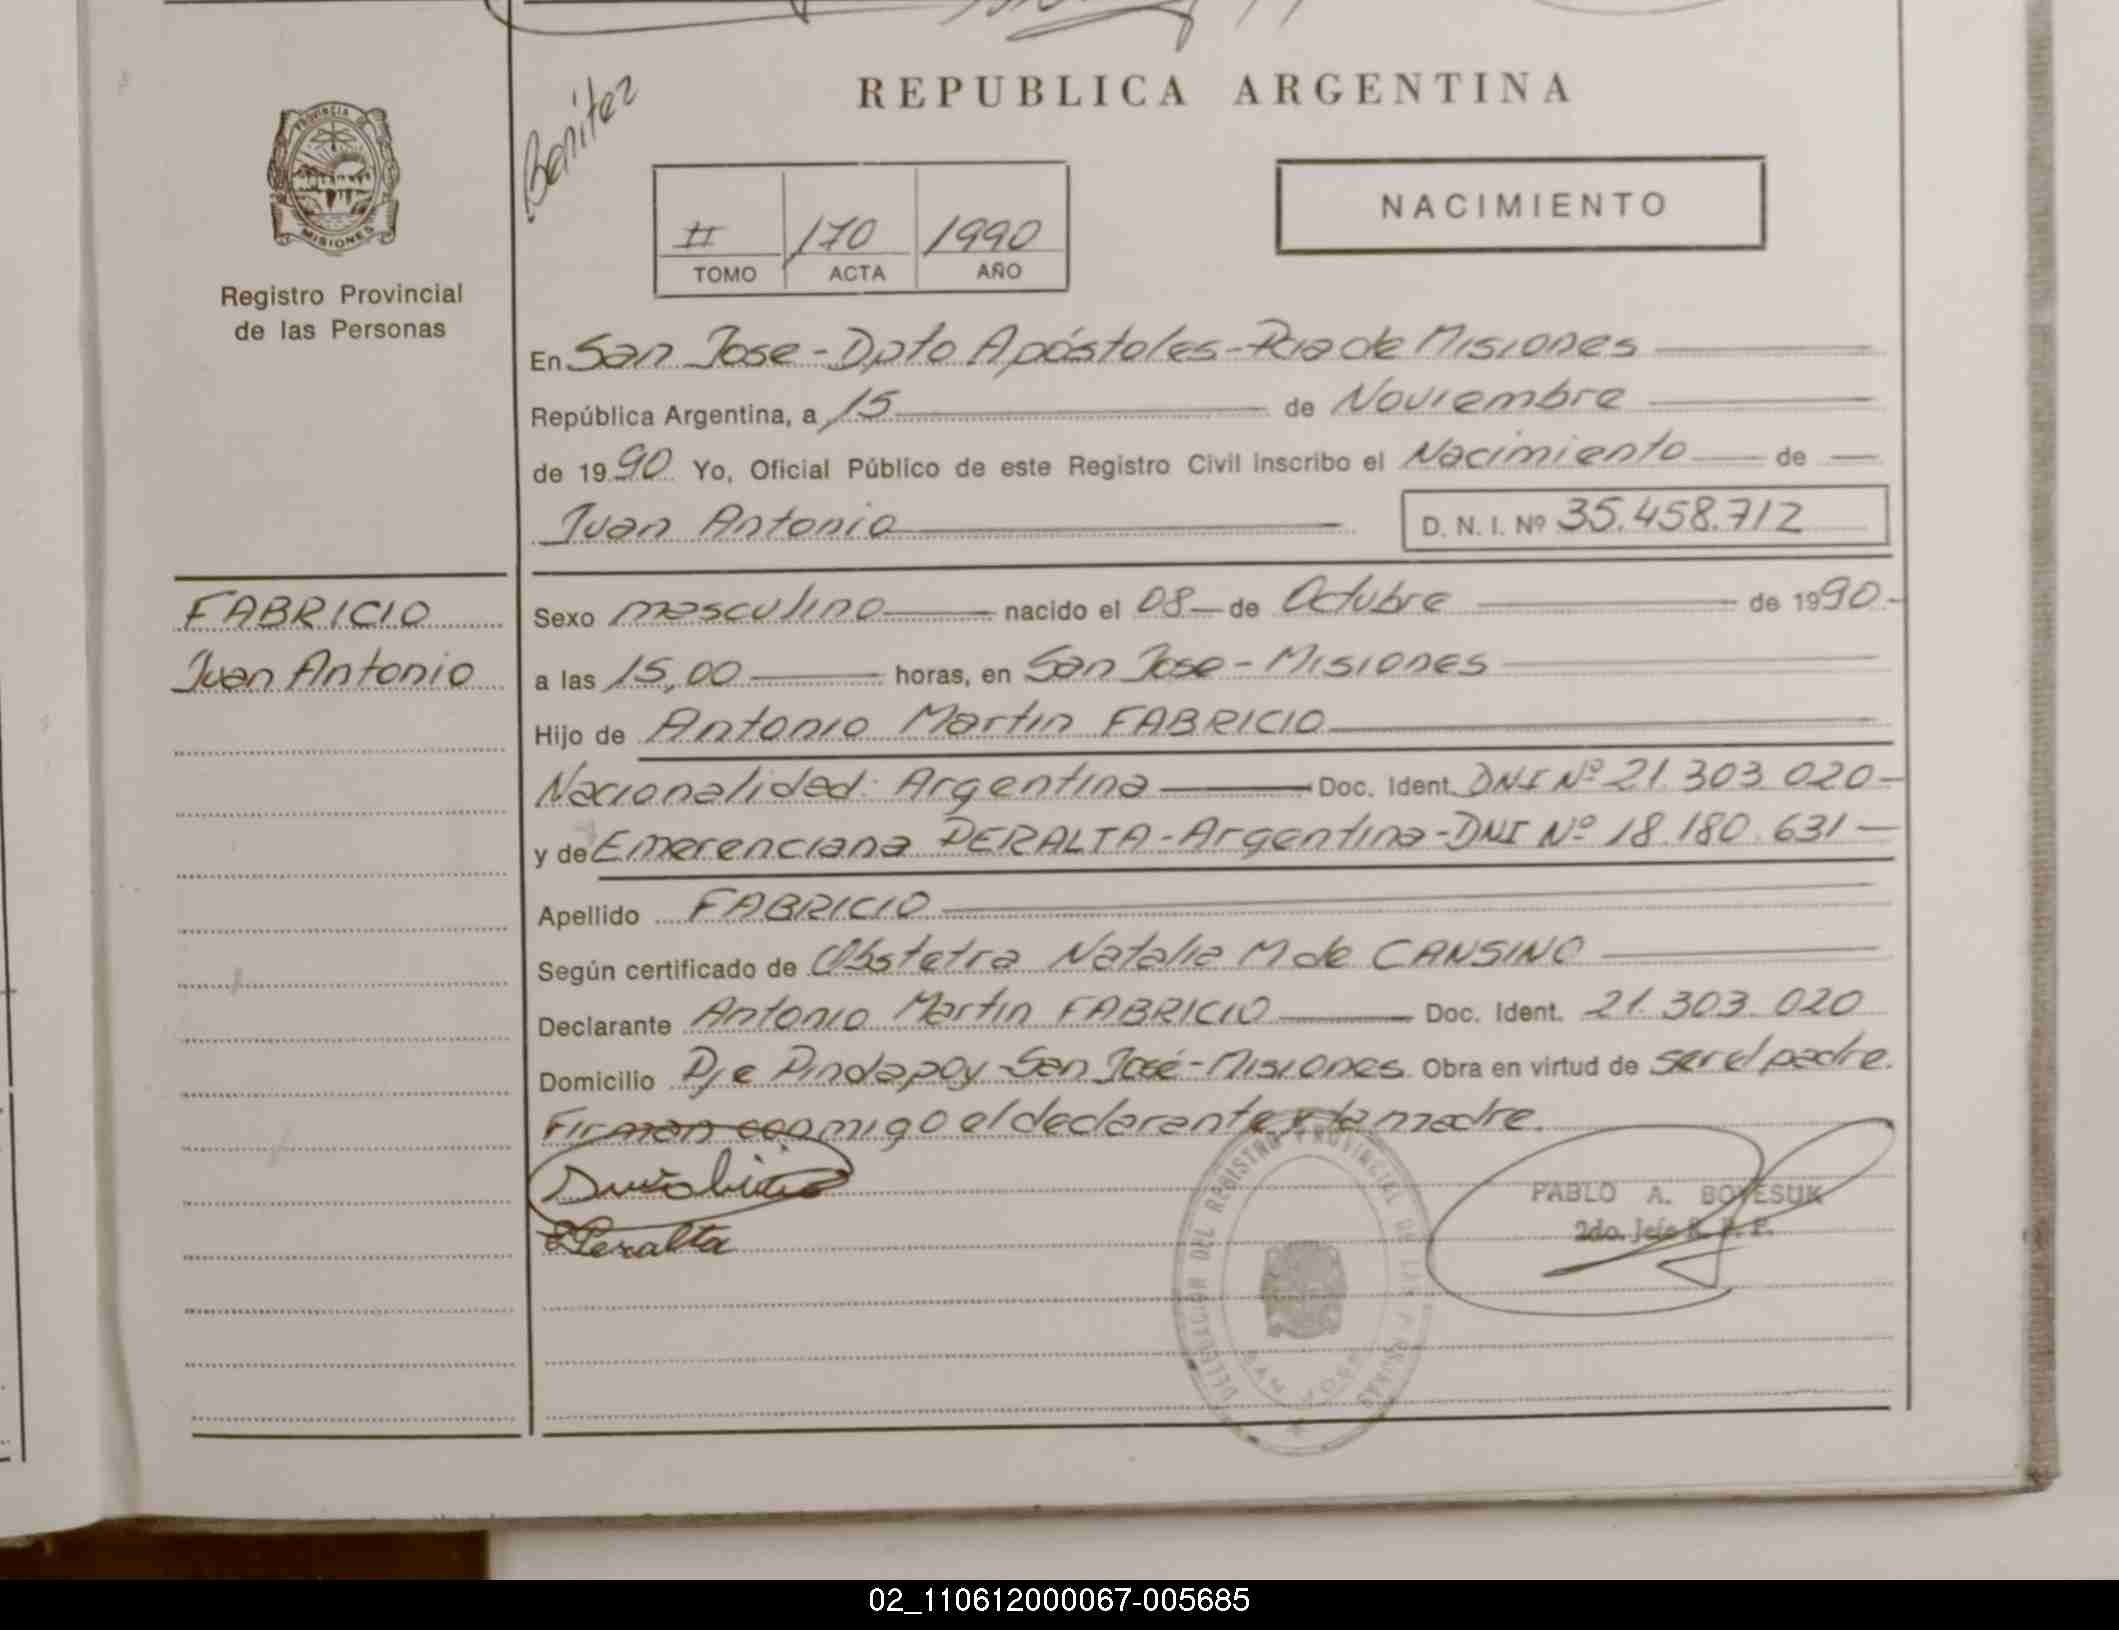 REPUBLICA ARGENTINA
Benitez
PROVINCIA DE
MISIONES
Registro Provincial
de las Personas
II 170 1990
TOMO ACTA AÑO
NACIMIENTO
En San Jose - Dpto Apóstoles - Pcia de Misiones
República Argentina, a 15 de Noviembre
de 1990 Yo, Oficial Público de este Registro Civil inscribo el Nacimiento de
Juan Antonio D. N. I. Nº 35.458.712
FABRICIO
Juan Antonio
Sexo masculino nacido el 08 de Octubre de 1990.-
a las 15,00 horas, en San Jose - Misiones
Hijo de Antonio Martin FABRICIO
Nacionalidad: Argentina Doc. Ident. DNI Nº 21.303.020-
y de Emerenciana PERALTA - Argentina - DNI Nº 18.180.631-
Apellido FABRICIO
Según certificado de Obstetra Natalia M de CANSINO
Declarante Antonio Martin FABRICIO Doc. Ident. 21.303.020
Domicilio Pje Pindapoy - San José - Misiones Obra en virtud de ser el padre.
Firman conmigo el declarante y la madre.
EPeralta
PABLO A. BOYESUK
2do. Jefe R. P. P.
DELEGACION DEL REGISTRO PROVINCIAL DE LAS PERSONAS
SAN JOSE
02_110612000067-005685